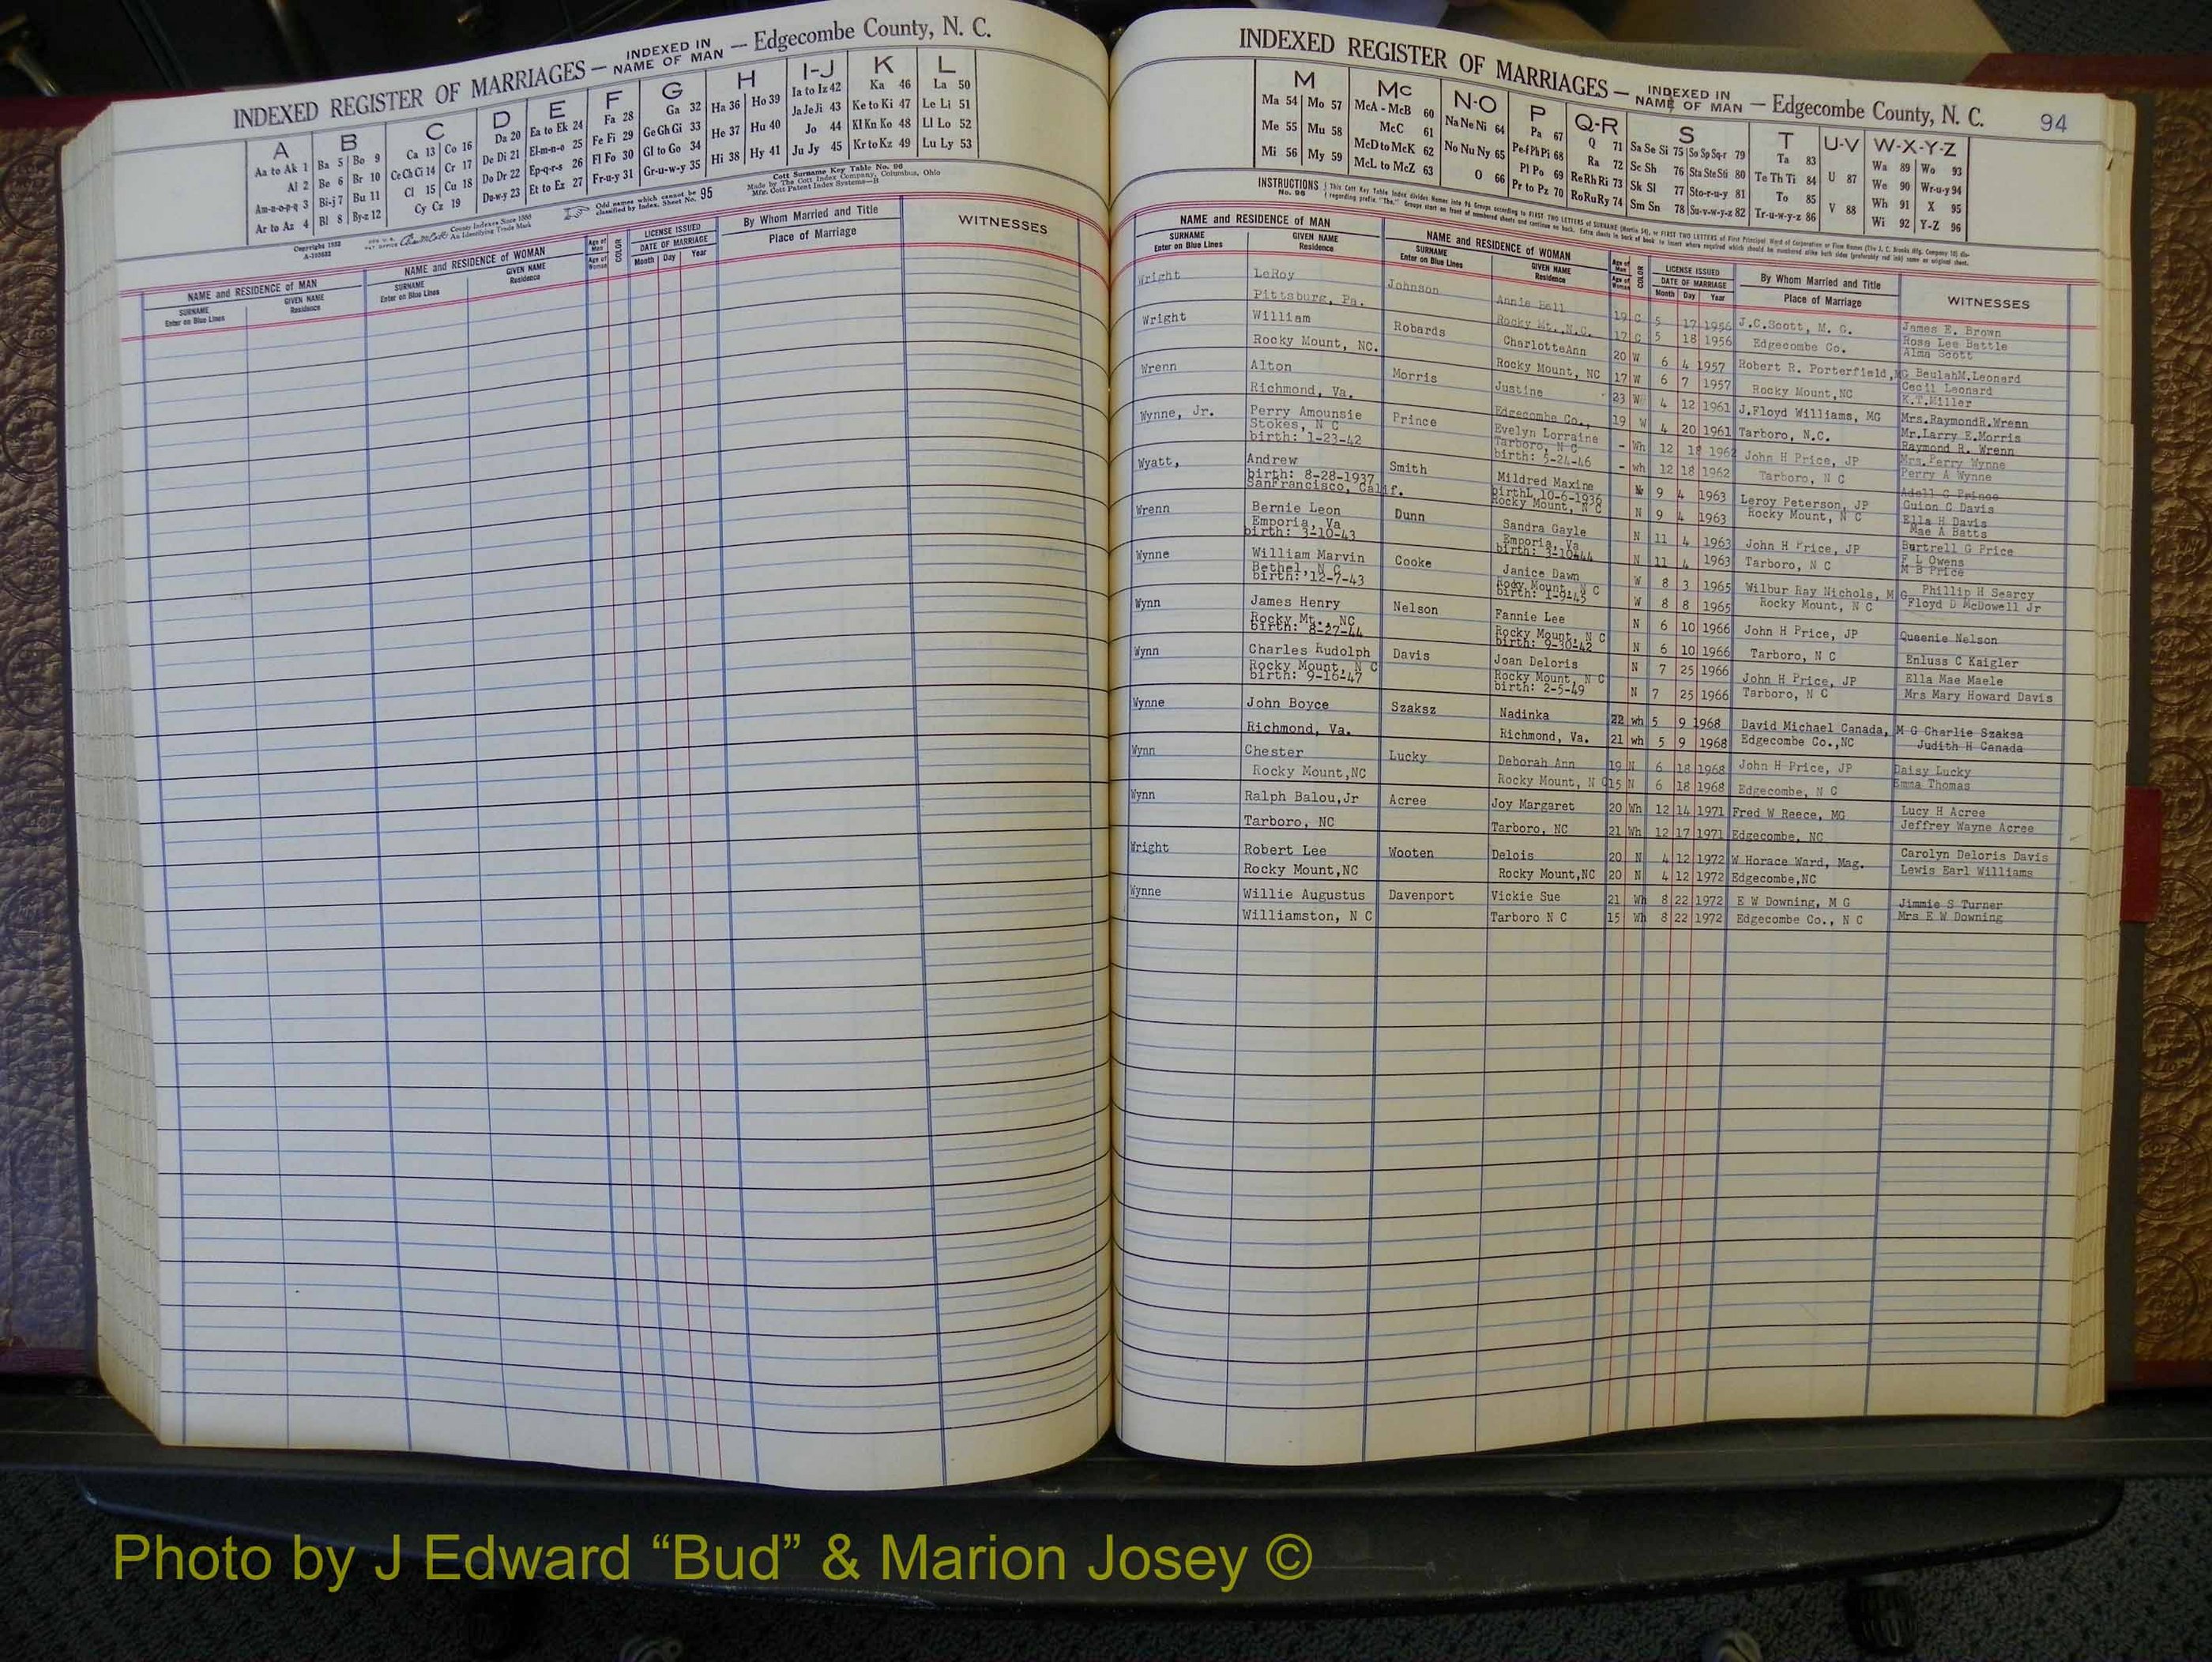 INDEXED REGISTER OF MARRIAGES — INDEXED IN NAME OF MAN — Edgecombe County, N. C.
A B C D E F G H I-J K L
Aa to Ak 1 Ba 5 Bo 9 Ca 13 Co 16 Da 20 Ea to Ek 24 Fa 28 Ga 32 Ha 36 Ho 39 Ia to Iz 42 Ka 46 La 50
Al 2 Be 6 Br 10 Ce Ch Ci 14 Cr 17 De Di 21 El-m-n-o 25 Fe Fi 29 Ge Gh Gi 33 He 37 Hu 40 Ja Je Ji 43 Ke to Ki 47 Le Li 51
Am-n-o-p-q 3 Bi-j 7 Bu 11 Cl 15 Cu 18 Do Dr 22 Ep-q-r-s 26 Fl Fo 30 Gl to Go 34 Hi 38 Hy 41 Jo 44 Kl Kn Ko 48 Ll Lo 52
Ar to Az 4 Bl 8 By-z 12 Cy Cz 19 Du-w-y 23 Et to Ez 27 Fr-u-y 31 Gr-u-w-y 35 Ju Jy 45 Kr to Kz 49 Lu Ly 53
Copyright 1932
County Indexes Since 1888
An Identifying Trade Mark
Odd names which cannot be classified by Index, Sheet No. 95
Cott Surname Key Table No. 96
Made by The Cott Index Company, Columbus, Ohio
Mfr. Cott Patent Index Systems—B
NAME and RESIDENCE OF MAN NAME and RESIDENCE OF WOMAN Age of Man COLOR LICENSE ISSUED By Whom Married and Title WITNESSES
SURNAME GIVEN NAME SURNAME GIVEN NAME Age of Woman DATE OF MARRIAGE Place of Marriage
Enter on Blue Lines Residence Enter on Blue Lines Residence Month Day Year
INDEXED REGISTER OF MARRIAGES — INDEXED IN NAME OF MAN — Edgecombe County, N. C. 94
M Mc N-O P Q-R S T U-V W-X-Y-Z
Ma 54 Mo 57 McA - McB 60 Na Ne Ni 64 Pa 67 Q 71 Sa Se Si 75 So Sp Sq-r 79 Ta 83 U 87 Wa 89 Wo 93
Me 55 Mu 58 McC 61 No Nu Ny 65 Pe-f Ph Pi 68 Ra 72 Sc Sh 76 Sta Ste Sti 80 Te Th Ti 84 V 88 We 90 Wr-u-y 94
Mi 56 My 59 McD to McK 62 O 66 Pl Po 69 Re Rh Ri 73 Sk Sl 77 Sto-r-u-y 81 To 85 Wh 91 X 95
McL to McZ 63 Pr to Pz 70 Ro Ru Ry 74 Sm Sn 78 Su-v-w-y-z 82 Tr-u-w-y-z 86 Wi 92 Y-Z 96
INSTRUCTIONS
No. 96
NAME and RESIDENCE OF MAN NAME and RESIDENCE OF WOMAN Age of Man COLOR LICENSE ISSUED By Whom Married and Title WITNESSES
SURNAME GIVEN NAME SURNAME GIVEN NAME Age of Woman DATE OF MARRIAGE Place of Marriage
Enter on Blue Lines Residence Enter on Blue Lines Residence Month Day Year
Wright LeRoy Johnson Annie Bell 19 C 5 17 1956 J.C.Scott, M. G. James E. Brown
Pittsburg, Pa. Rocky Mt., N.C. 17 C 5 18 1956 Edgecombe Co. Rosa Lee Battle
Alma Scott
Wright William Robards CharlotteAnn 20 W 6 4 1957 Robert R. Porterfield,MG BeulahM.Leonard
Rocky Mount, NC. Rocky Mount, NC 17 W 6 7 1957 Rocky Mount,NC Cecil Leonard
K.T.Miller
Wrenn Alton Morris Justine 23 W 4 12 1961 J.Floyd Williams, MG Mrs.RaymondR.Wrenn
Richmond, Va. Edgecombe Co., 19 W 4 20 1961 Tarboro, N.C. Mr.Larry E.Morris
Raymond R. Wrenn
Wynne, Jr. Perry Amounsie Prince Evelyn Lorraine - Wh 12 18 1962 John H Price, JP Mrs.Perry Wynne
Stokes, N C Tarboro, N C - wh 12 18 1962 Tarboro, N C Perry A Wynne
birth: 1-23-42 birth: 5-24-46 Adell G Prince
Wyatt, Andrew Smith Mildred Maxine N 9 4 1963 Leroy Peterson, JP Guion C Davis
birth: 8-28-1937 birthL 10-6-1936 N 9 4 1963 Rocky Mount, N C Ella H Davis
SanFrancisco, Calif. Rocky Mount, N C Mae A Batts
Wrenn Bernie Leon Dunn Sandra Gayle N 11 4 1963 John H Price, JP Burtrell G Price
Emporia, Va Emporia, Va N 11 4 1963 Tarboro, N C F L Owens
birth: 3-10-43 birth: 3-10444 M B Price
Wynne William Marvin Cooke Janice Dawn W 8 3 1965 Wilbur Ray Nichols, M G Phillip H Searcy
Bethel, N C Rocky Mount, N C W 8 8 1965 Rocky Mount, N C Floyd D McDowell Jr
birth: 12-7-43 birth: 1-9-45
Wynn James Henry Nelson Fannie Lee N 6 10 1966 John H Price, JP Queenie Nelson
Rocky Mt., NC Rocky Mount, N C N 6 10 1966 Tarboro, N C Enluss C Kaigler
birth: 8-27-44 birth: 9-30-42
Wynn Charles Rudolph Davis Joan Deloris N 7 25 1966 John H Price, JP Ella Mae Maele
Rocky Mount, N C Rocky Mount, N C N 7 25 1966 Tarboro, N C Mrs Mary Howard Davis
birth: 9-16-47 birth: 2-5-49
Wynne John Boyce Szaksz Nadinka 22 wh 5 9 1968 David Michael Canada, M G Charlie Szaksa
Richmond, Va. Richmond, Va. 21 wh 5 9 1968 Edgecombe Co.,NC Judith H Canada
Wynn Chester Lucky Deborah Ann 19 N 6 18 1968 John H Price, JP Daisy Lucky
Rocky Mount,NC Rocky Mount, N C 15 N 6 18 1968 Edgecombe, N C Emma Thomas
Wynn Ralph Balou,Jr Acree Joy Margaret 20 Wh 12 14 1971 Fred W Reece, MG Lucy H Acree
Tarboro, NC Tarboro, NC 21 Wh 12 17 1971 Edgecombe, NC Jeffrey Wayne Acree
Wright Robert Lee Wooten Delois 20 N 4 12 1972 W Horace Ward, Mag. Carolyn Deloris Davis
Rocky Mount,NC Rocky Mount,NC 20 N 4 12 1972 Edgecombe,NC Lewis Earl Williams
Wynne Willie Augustus Davenport Vickie Sue 21 Wh 8 22 1972 E W Downing, M G Jimmie S Turner
Williamston, N C Tarboro N C 15 Wh 8 22 1972 Edgecombe Co., N C Mrs E W Downing
Photo by J Edward “Bud” & Marion Josey ©